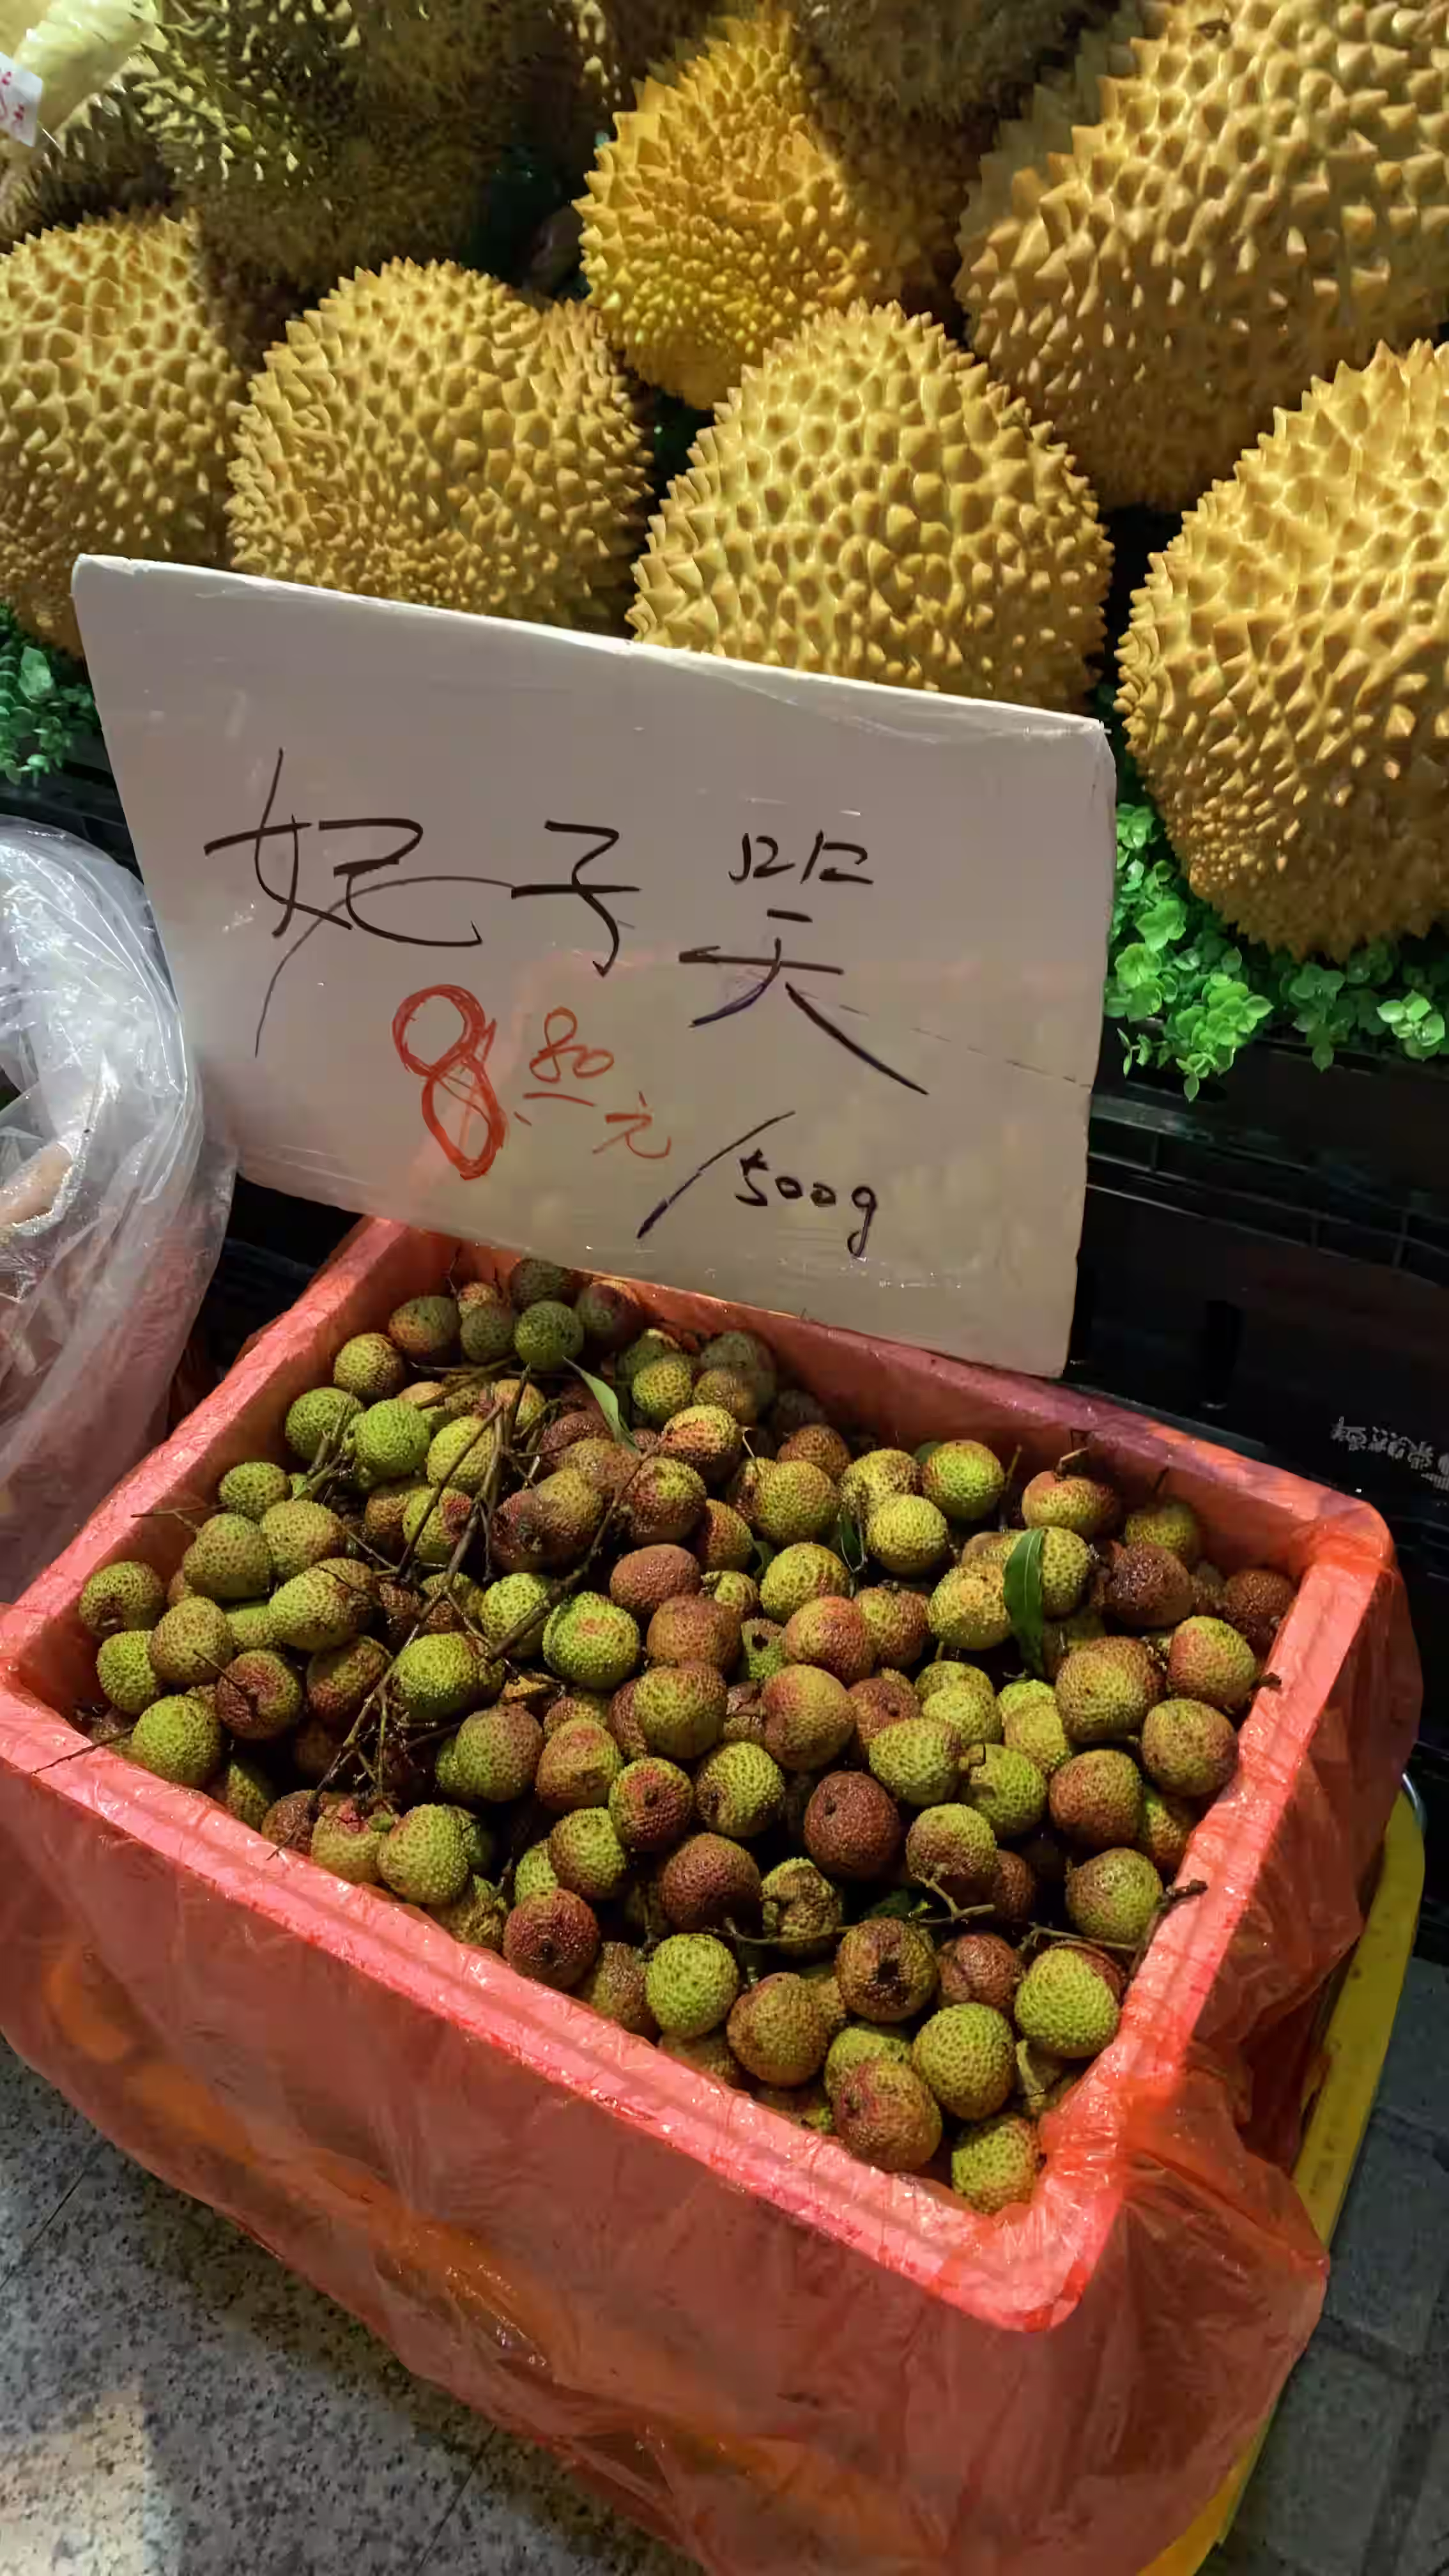 妃子笑
8.80元
/500g